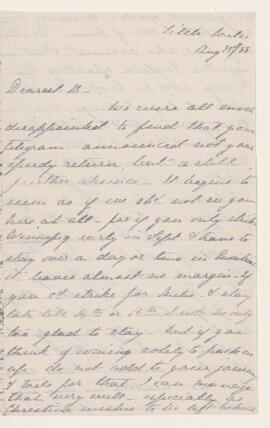 Little Metis
Aug 25/88
Dearest B—
We were all much
disappointed to find that your
telegram announced not your
speedy return, but a still
further absence— It begins to
seem as if we shd. not see you
here at all— for if you only strike
Winnipeg early in Sept. & have to
stay over a day or two in
it leaves almost no margin— If
you cd. strike for Metis & stay
late till 14th or 15th I will be only
too glad to stay— but if you
think of coming solely to pack us
up do not add to your journey
& toils for that I can manage
that very well— especially as
Christina wishes to be left behind